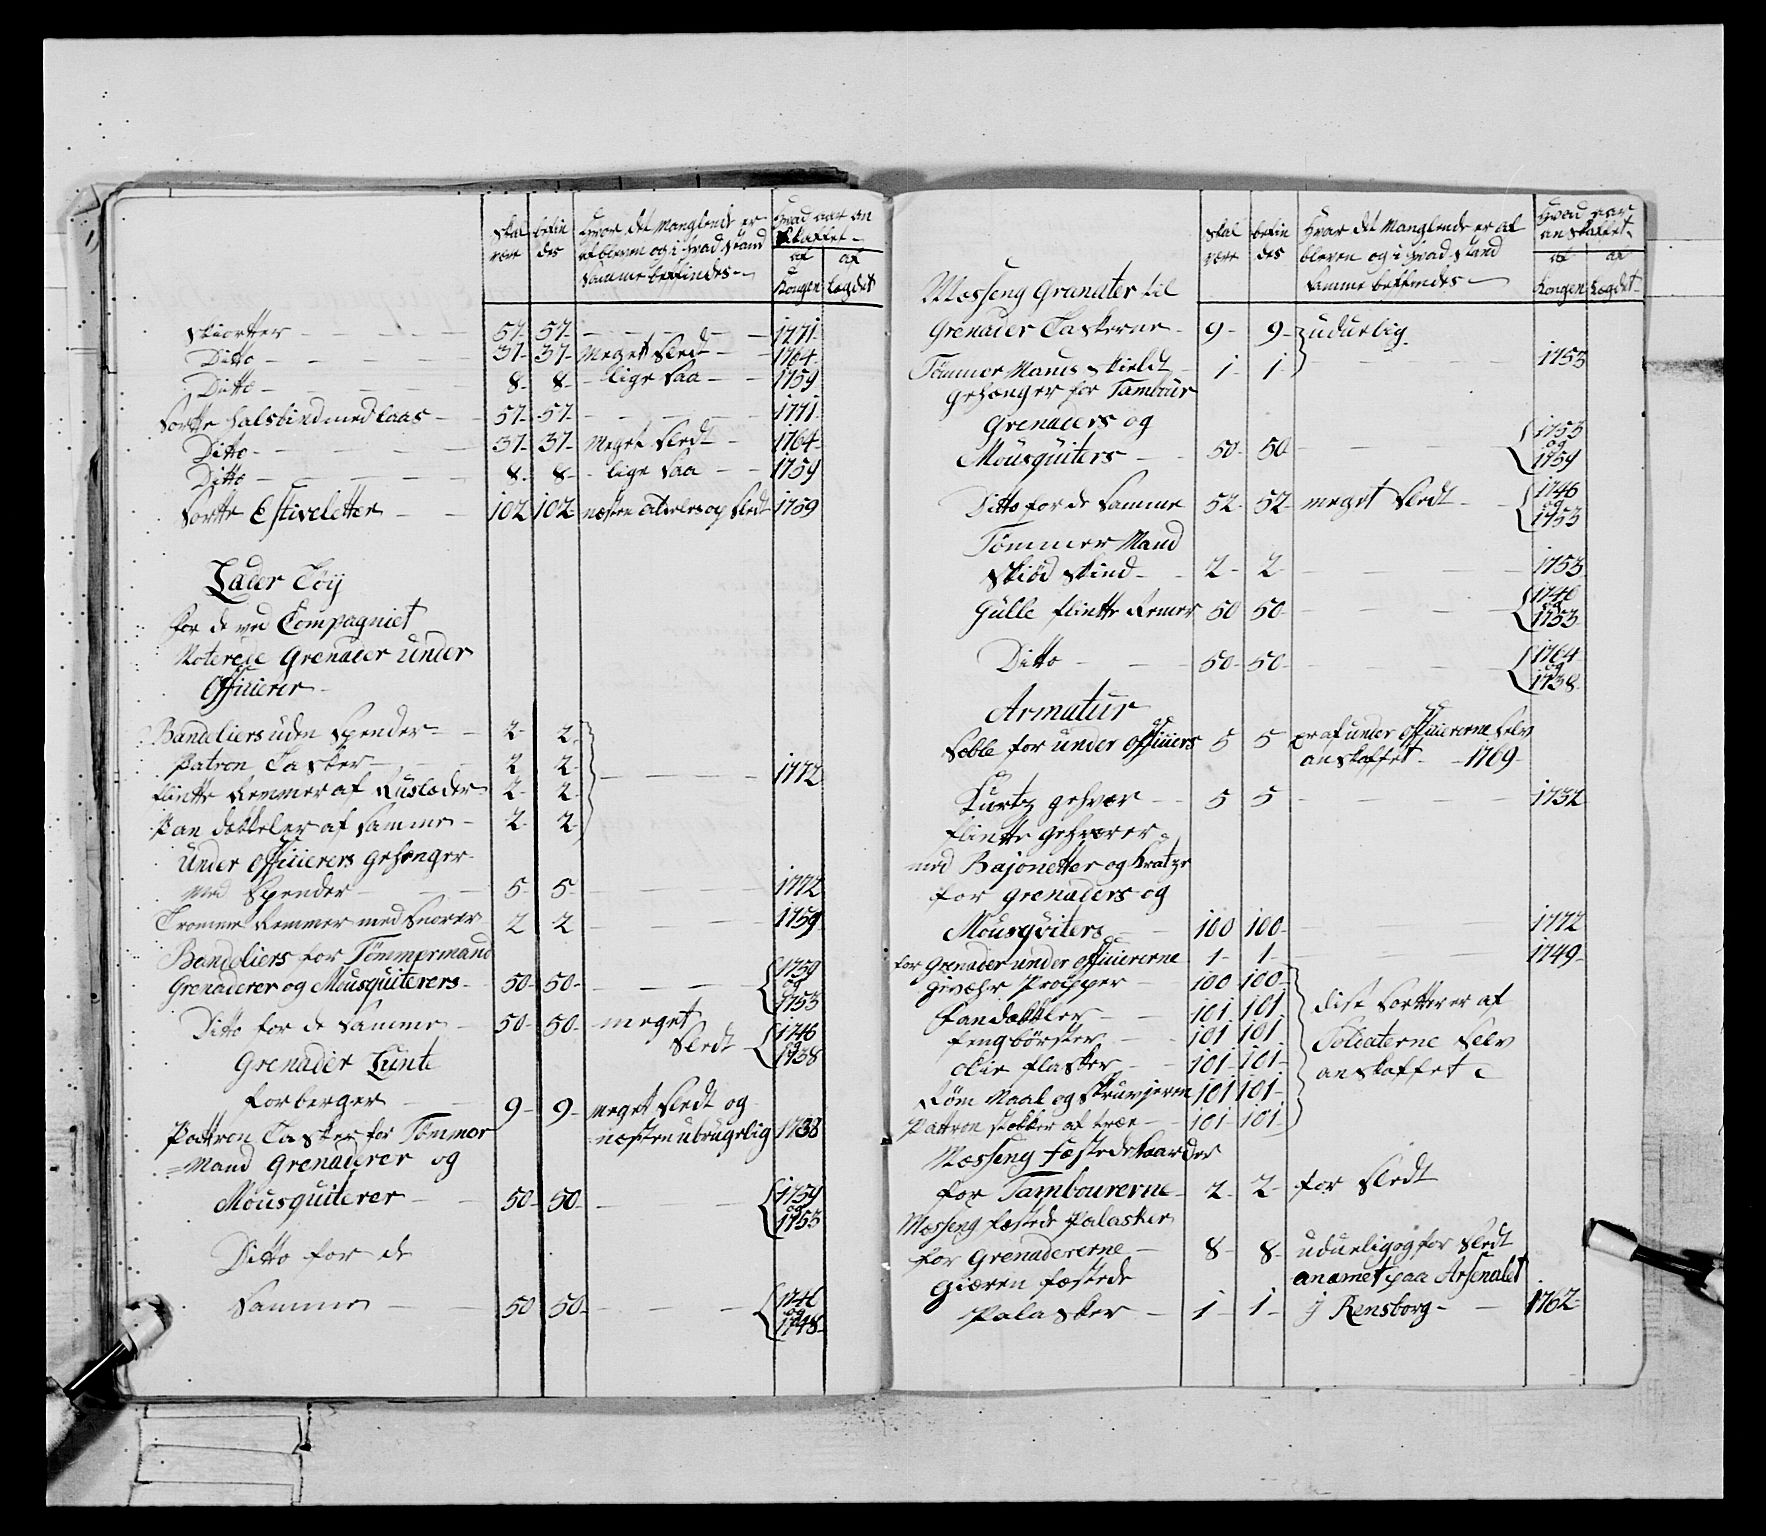 Skal være | befin des | Hvor det Manglende er afbleven og i hvad Stand Samme beffindes | Hvad aar an Skaffet
af Kongen | af Lægdet
Skiortter 57 57 1771
Ditto 37 37 Meget Sledt 1764
Ditto 8 8 lige Saa 1759
Sortte Halsbind med Laas 57 57 1771
Ditto 37 37 Meget Sledt 1764
Ditto 8 8 lige Saa 1759
Sortte Estiveletter 102 102 næsten alderlos og Sledt 1759
Læder Töy
for de ved Compagniet
Noterede Grenader Under
Officierer
Bandeliers uden Spender 2 2
Patron Tasker 2 2 1772
flintte Remmer af Ruslæder 2 2
Pan dekkeler af Samme 2 2
Under Officierers gehænger
med Spender 5 5 1772
Tromme Remmer med Snorer 2 2 1759
Bandeliers for Tömmermand
Grenaderer og Mousquiterers 50 50 1759 og 1753
Ditto for de Samme 50 50 meget Sledt 1746 og 1738
Grenader Lunte
forberger 9 9 meget Sledt og
Pattron Tasker for Tömmer næsten ubrugelig 1738
Mand Grenaderer og
Mousquiterer 50 50 1759 og 1753
Ditto for de
Samme 50 50 1746 og 1748
Skal være | befin des | Hvor det Manglende er af bleven og i hvad Stand Samme beffindes | Hvad aar anskaffet
af Kongen | af Lægdet
Messeng Granater til
Grenader Taskerne 9 9 uduelig
Tömmer Mands Skieldt 1 1 1753
gehænger for Tambour
Grenaders og
Mousquiters 50 50 1753 og 1759
Ditto for de Samme 52 52 meget Sledt 1746 og 1753
Tömmer Mand
Skiöd Skind 2 2 1753
Gulle flintte Remer 50 50 1746 og 1753
Ditto 50 50 1764 og 1738
Armatur
Sable for under Officiers 5 5 er af under Officiererne Selv
anskaffet 1769
Kurtz gehvær 5 5 1732
flintte gehværer
med Bajonetter og Kratzer
for grenaders og
Mousqviters 100 100 1772
for Grenader under Officiererne 1 1 1749
givæhr Propper 100 100
Pandækler 101 101 dise Sortter er af
fengbörster 101 101 Soldaterne Selv
olie flasker 101 101 anskaffet
Röm Naal og Skruvjeren 101 101
Pattron stokker af træe 101 101
Messeng fæstede Kaarder
for Tambourerne 2 2 for Sledt
Messeng fæstede Palasker
for Grenadererne 8 8 uduelig og for Sledt
Gieren fæstede anamet paa Arsenalet
Palasker 1 1 j Rensborg 1762